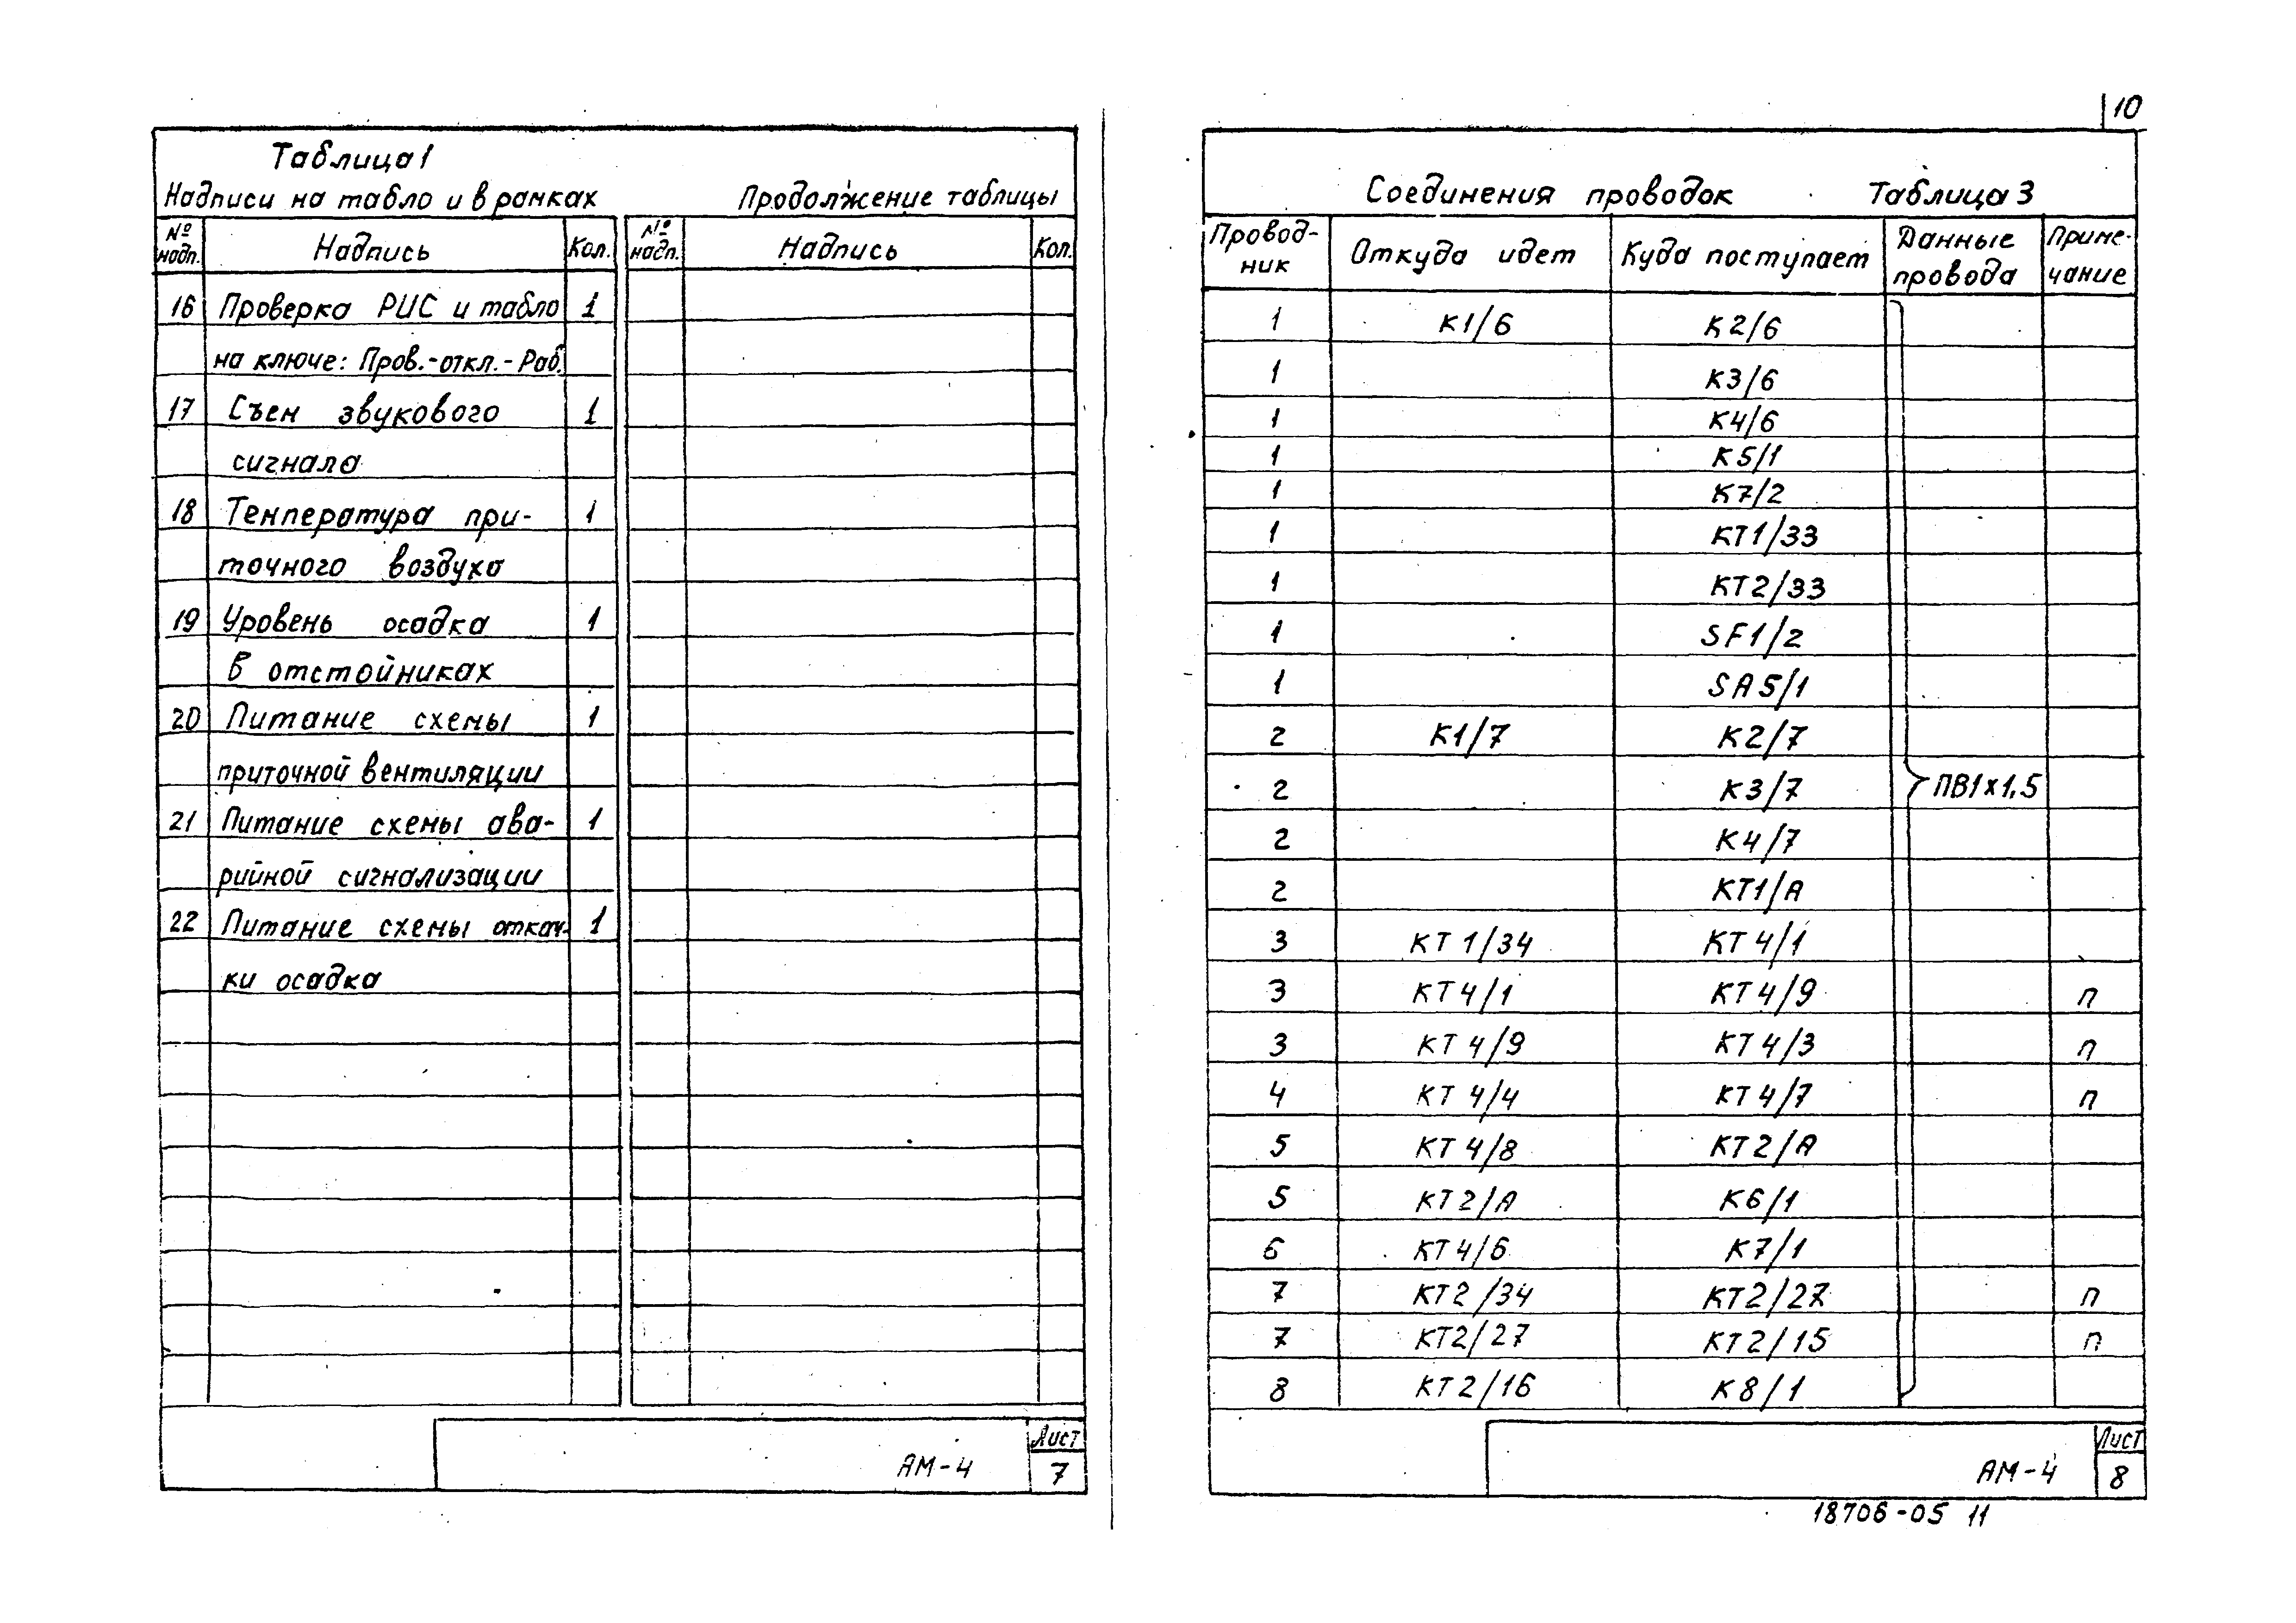 10
Таблица 1
Надписи на табло и в рамках
Продолжение таблицы
№ надп. Надпись Кол. № надп. Надпись Кол.
16 Проверка РИС и табло 1
на ключе: Пров.-откл.-Раб.
17 Съем звукового 1
сигнала
18 Температура при- 1
точного воздуха
19 Уровень осадка 1
в отстойниках
20 Питание схемы 1
приточной вентиляции
21 Питание схемы ава- 1
рийной сигнализации
22 Питание схемы откач- 1
ки осадка
АМ-4
Лист
7
Соединения проводок Таблица 3
Провод-ник Откуда идет Куда поступает Данные провода Приме-чание
1 К1/6 К2/6
1 К3/6
1 К4/6
1 К5/1
1 К7/2
1 КТ1/33
1 КТ2/33
1 SF1/2
1 SA5/1
2 К1/7 К2/7
2 К3/7 ПВ1х1,5
2 К4/7
2 КТ1/А
3 КТ1/34 КТ4/1
3 КТ4/1 КТ4/9 п
3 КТ4/9 КТ4/3 п
4 КТ4/4 КТ4/7 п
5 КТ4/8 КТ2/А
5 КТ2/А К6/1
6 КТ4/6 К7/1
7 КТ2/34 КТ2/27 п
7 КТ2/27 КТ2/15 п
8 КТ2/16 К8/1
АМ-4
Лист
8
18706-05 11